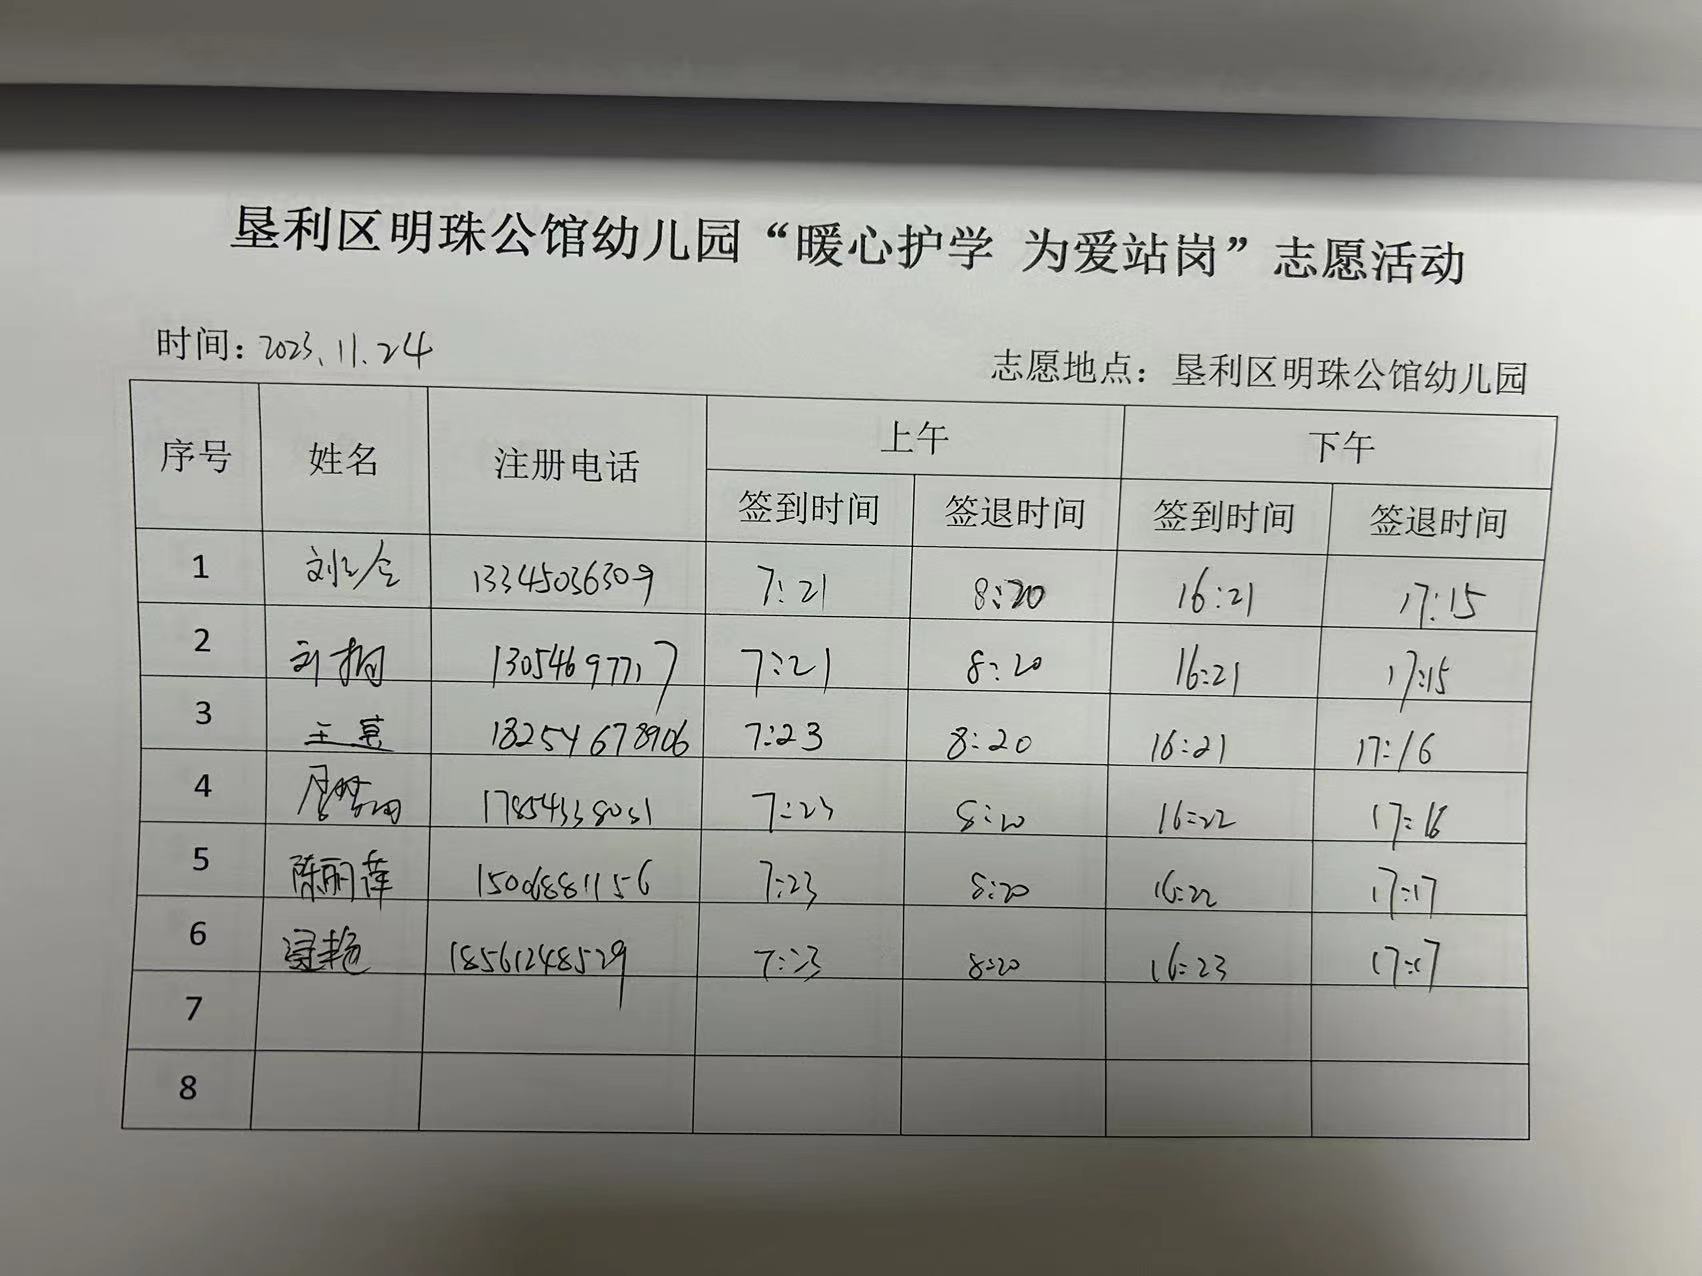 垦利区明珠公馆幼儿园“暖心护学 为爱站岗”志愿活动
时间：2023.11.24
志愿地点：垦利区明珠公馆幼儿园
序号 姓名 注册电话 上午 下午
签到时间 签退时间 签到时间 签退时间
1 13345036309 7:21 8:20 16:21 17:15
2 刘 13054697717 7:21 8:20 16:21 17:15
3 王 18254678906 7:23 8:20 16:21 17:16
4 17854338031 7:23 8:20 16:22 17:16
5 陈丽萍 15006881156 7:23 8:20 16:22 17:17
6 艳 18561248529 7:23 8:20 16:23 17:17
7
8